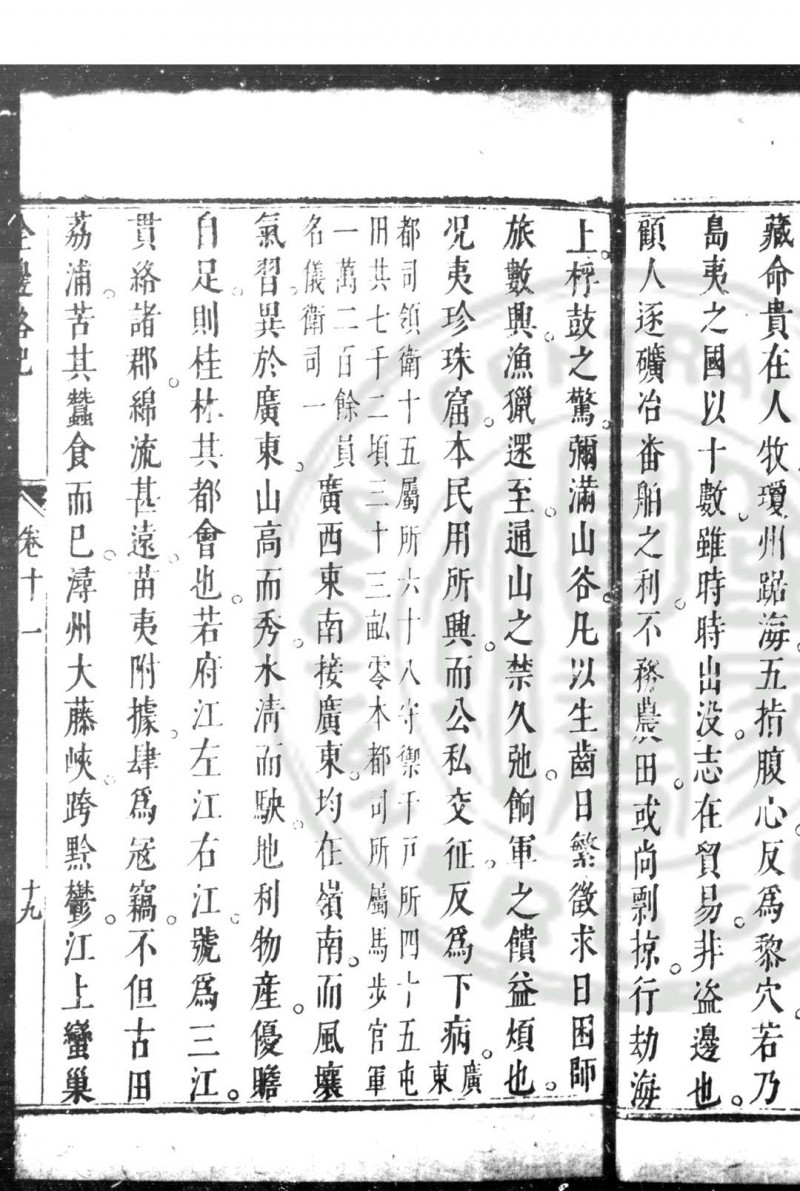 藏命貴在人牧瓊州踞海五指腹心反為黎穴若乃
島夷之國以十數雖時時出没志在貿易非盗邊也
顧人逐礦冶畨舶之利不務農田或尚剽掠行劫海
上桴鼓之驚彌滿山谷凡以生齒日繁徵求日困師
旅數興漁獵遝至通山之禁久弛餉軍之饋益煩也
况夷珍珠窟本民用所興而公私交征反為下病廣東
都司領衛十五屬所六十八守禦千戸所四十五屯
田共七千二頃三十三畝零本都司所屬馬步官軍
一萬二百餘員
名儀衛司一
廣西東南接廣東均在嶺南而風壤
氣習異於廣東山高而秀水清而駛地利物産優贍
自足則桂林其都會也若府江左江右江號為三江
貫絡諸郡綿流甚遠苗夷附據肆為冦竊不但古田
荔浦苦其蠶食而巳潯州大藤峽跨黔鬱江上蠻巢
全邊略記
卷十一
十九